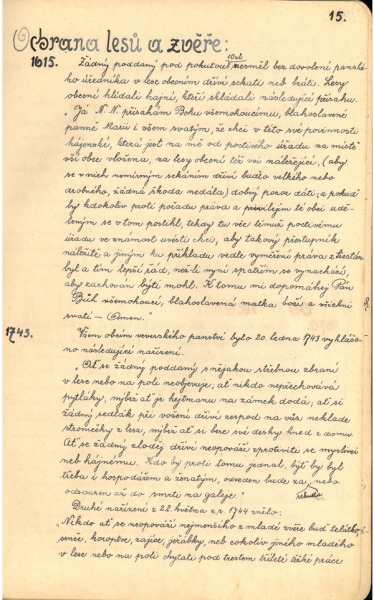 15.
Ochrana lesů a zvěře:
1615. Žádný poddaný pod pokutou nesměl bez dovolení panské-
ho úředníka v lese obecním dříví sekati neb bráti. Lesy
obecní hlídali hajní, kteří skládali následující přísahu.
„Já N. N. přísahám Bohu všemohoucímu, blahoslavené
panně Marii i všem svatým, že chci v této své povinnosti
hájenské, která jest na mě od poctivého úřadu na místě
vší obce vložena, na lesy obecní též vší náležející, (aby
se v nich nemírným sekáním dříví buďto velkého nebo
drobného, žádná škoda nedála) dobrý pozor dáti; a pokud
by kdokoliv proti pořádu práva a privilejím té obci udě-
leným se v tom postihl, tehdy tu věc témuž poctivému
úřadu ve známost uvésti chci, aby takový přestupník
náležitě a jiným ku příkladu vedle vyměření práva ztrestán
byl a tím lepší řád, než-li nyní spatřím se vynachází,
aby zachován býti mohl. K tomu mi dopomáhej Pán
Bůh všemohoucí, blahoslavená matka boží a všichni
svatí – Amen."
1743. Všem obcím veverského panství bylo 20. ledna 1743 vyhlášе-
no následující nařízení.
„Ať se žádný poddaný s nějakou střelnou zbraní
v lese nebo na poli neobjevuje; ať nikdo nepřechovává
pytláky, nýbrž ať je hejtmanu na zámek dodá; ať si
žádný sedlák při vožení dříví zespod na vůz neklade
stromečky z lesa, nýbrž ať si bere své desky hned z domu.
Ať se žádný zloděj dříví neopováží zprotiviti se myslivci
neb hájnému. Kdo by proti tomu jednal, býti by byl
třeba i hospodářem a ženatým, odveden bude za rekruta nebo
odsouzen až do smrti na galeje."
Druhé nařízení z 22. května z r. 1744 znělo:
„Nikdo ať se neopováží nejmenšího z mladé zvěře buď telátko,
srnče, koroptve, zajíce, jeřábky, neb cokoliv jiného mladého
v lese nebo na poli chytati pod trestem tříleté těžké práce